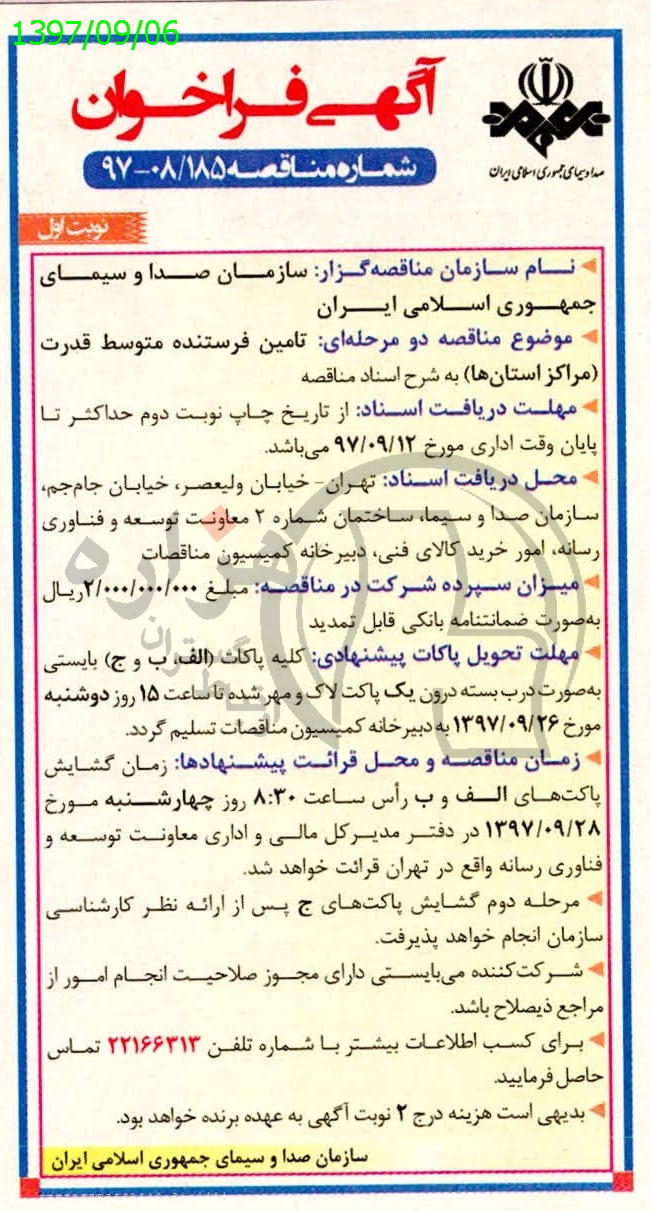 1397/09/06
آگهی فراخوان
شماره مناقصه ۹۷-۰۸/۱۸۵
صدا و سیمای جمهوری اسلامی ایران
نوبت اول
نام سازمان مناقصه‌گزار: سازمان صدا و سیمای
جمهوری اسلامی ایران
موضوع مناقصه دو مرحله‌ای: تامین فرستنده متوسط قدرت
(مراکز استان‌ها) به شرح اسناد مناقصه
مهلت دریافت اسناد: از تاریخ چاپ نوبت دوم حداکثر تا
پایان وقت اداری مورخ ۹۷/۰۹/۱۲ می‌باشد.
محل دریافت اسناد: تهران- خیابان ولیعصر، خیابان جام‌جم،
سازمان صدا و سیما، ساختمان شماره ۲ معاونت توسعه و فناوری
رسانه، امور خرید کالای فنی، دبیرخانه کمیسیون مناقصات
میزان سپرده شرکت در مناقصه: مبلغ ۲/۰۰۰/۰۰۰/۰۰۰ریال
به‌صورت ضمانتنامه بانکی قابل تمدید
مهلت تحویل پاکات پیشنهادی: کلیه پاکات (الف، ب و ج) بایستی
به‌صورت درب بسته درون یک پاکت لاک و مهر شده تا ساعت ۱۵ روز دوشنبه
مورخ ۱۳۹۷/۰۹/۲۶ به دبیرخانه کمیسیون مناقصات تسلیم گردد.
زمان مناقصه و محل قرائت پیشنهادها: زمان گشایش
پاکت‌های الف و ب رأس ساعت ۸:۳۰ روز چهارشنبه مورخ
۱۳۹۷/۰۹/۲۸ در دفتر مدیرکل مالی و اداری معاونت توسعه و
فناوری رسانه واقع در تهران قرائت خواهد شد.
مرحله دوم گشایش پاکت‌های ج پس از ارائه نظر کارشناسی
سازمان انجام خواهد پذیرفت.
شرکت‌کننده می‌بایستی دارای مجوز صلاحیت انجام امور از
مراجع ذیصلاح باشد.
برای کسب اطلاعات بیشتر با شماره تلفن ۲۲۱۶۶۳۱۳ تماس
حاصل فرمایید.
بدیهی است هزینه درج ۲ نوبت آگهی به عهده برنده خواهد بود.
سازمان صدا و سیمای جمهوری اسلامی ایران
هزاره